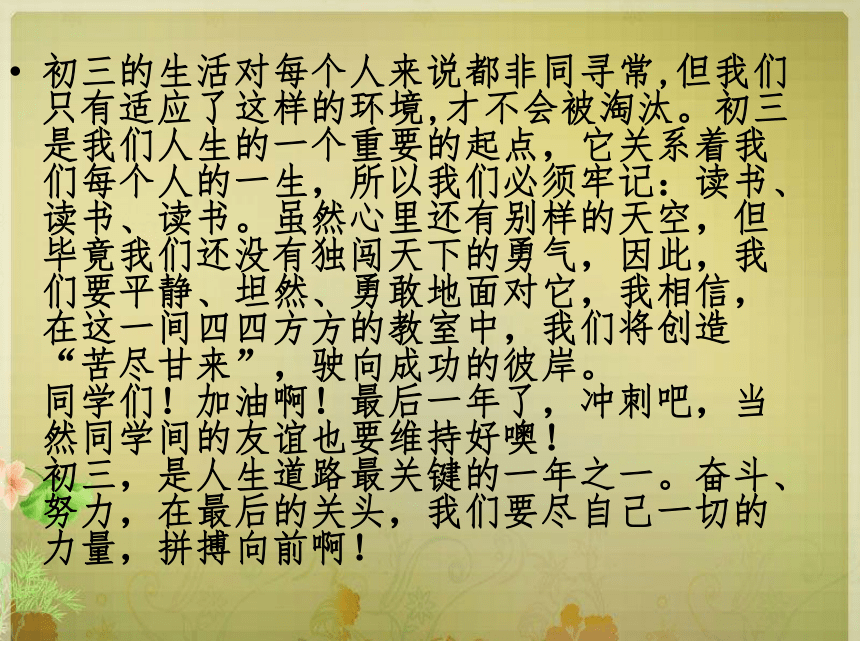 • 初三的生活对每个人来说都非同寻常,但我们
只有适应了这样的环境,才不会被淘汰。初三
是我们人生的一个重要的起点，它关系着我
们每个人的一生，所以我们必须牢记：读书、
读书、读书。虽然心里还有别样的天空，但
毕竟我们还没有独闯天下的勇气，因此，我
们要平静、坦然、勇敢地面对它，我相信，
在这一间四四方方的教室中，我们将创造
“苦尽甘来”，驶向成功的彼岸。
同学们！加油啊！最后一年了，冲刺吧，当
然同学间的友谊也要维持好噢！
初三，是人生道路最关键的一年之一。奋斗、
努力，在最后的关头，我们要尽自己一切的
力量，拼搏向前啊！